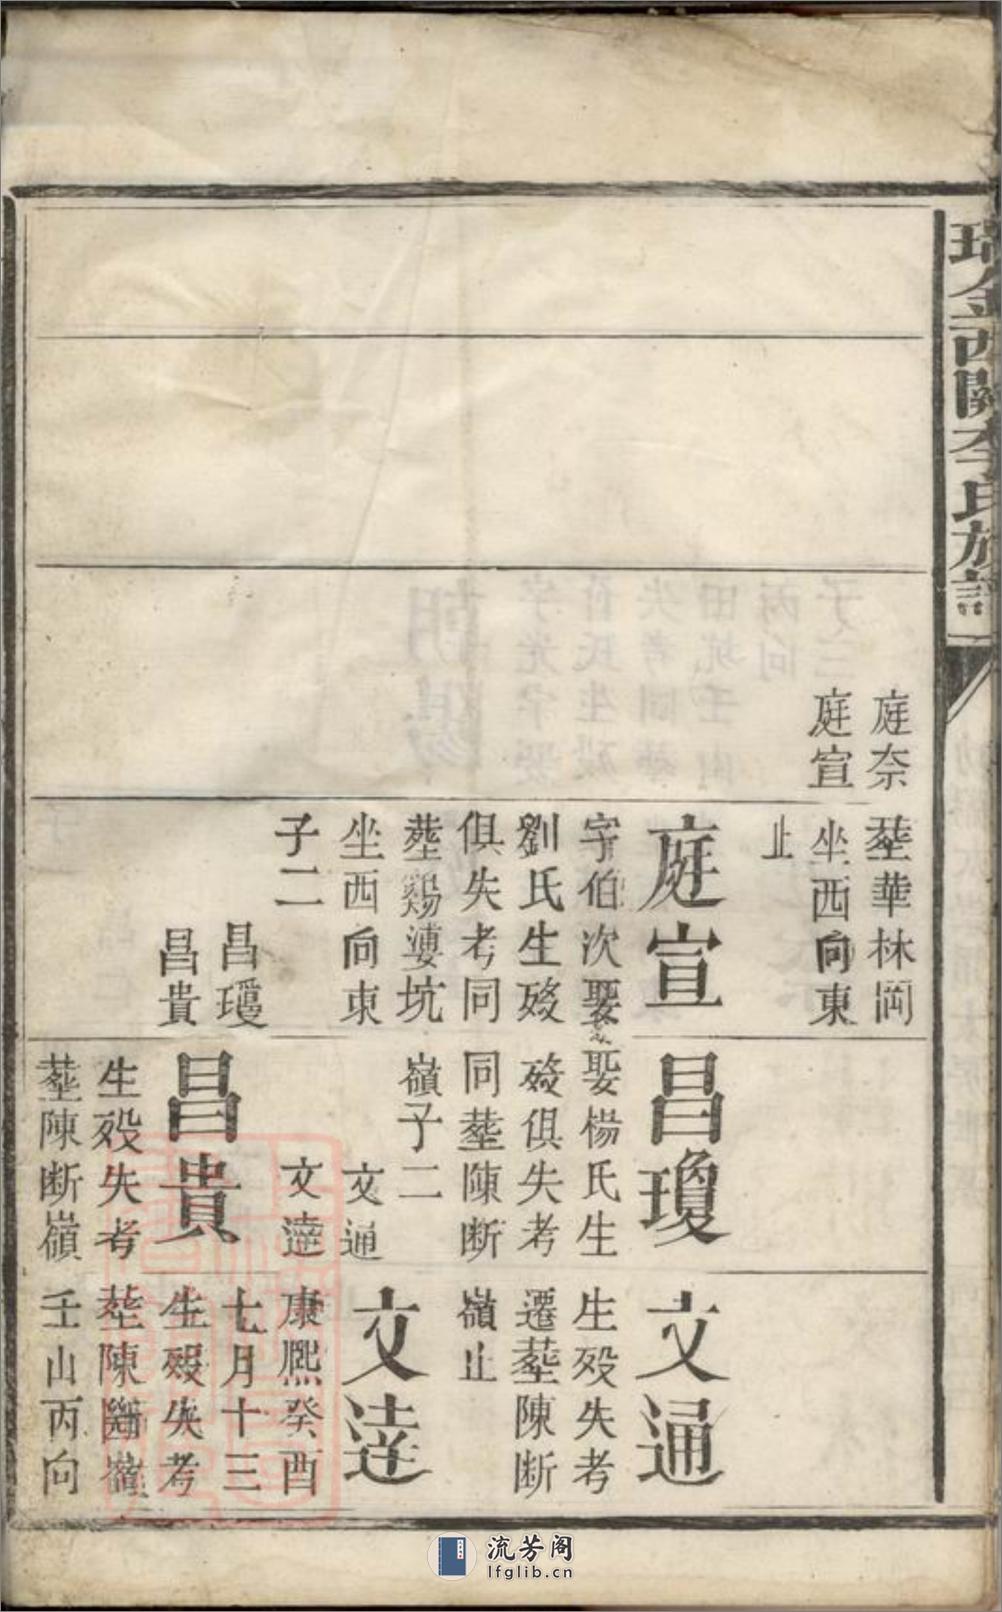 瑞金西關李氏族譜
庭奈
庭宣
塟華林岡
坐西向東
止
庭宣
字伯次娶
劉氏生殁
俱失考同
塟鷄婆坑
坐西向東
子二
昌瓊
昌貴
昌瓊
娶楊氏生
殁俱失考
同塟陳断
嶺子二
文通
文達
昌貴
生殁失考
塟陳断嶺
文通
生殁失考
遷塟陳断
嶺止
文達
康熙癸酉
七月十三
生殁失考
塟陳斷嶺
壬山丙向
流芳阁
lfglib.cn